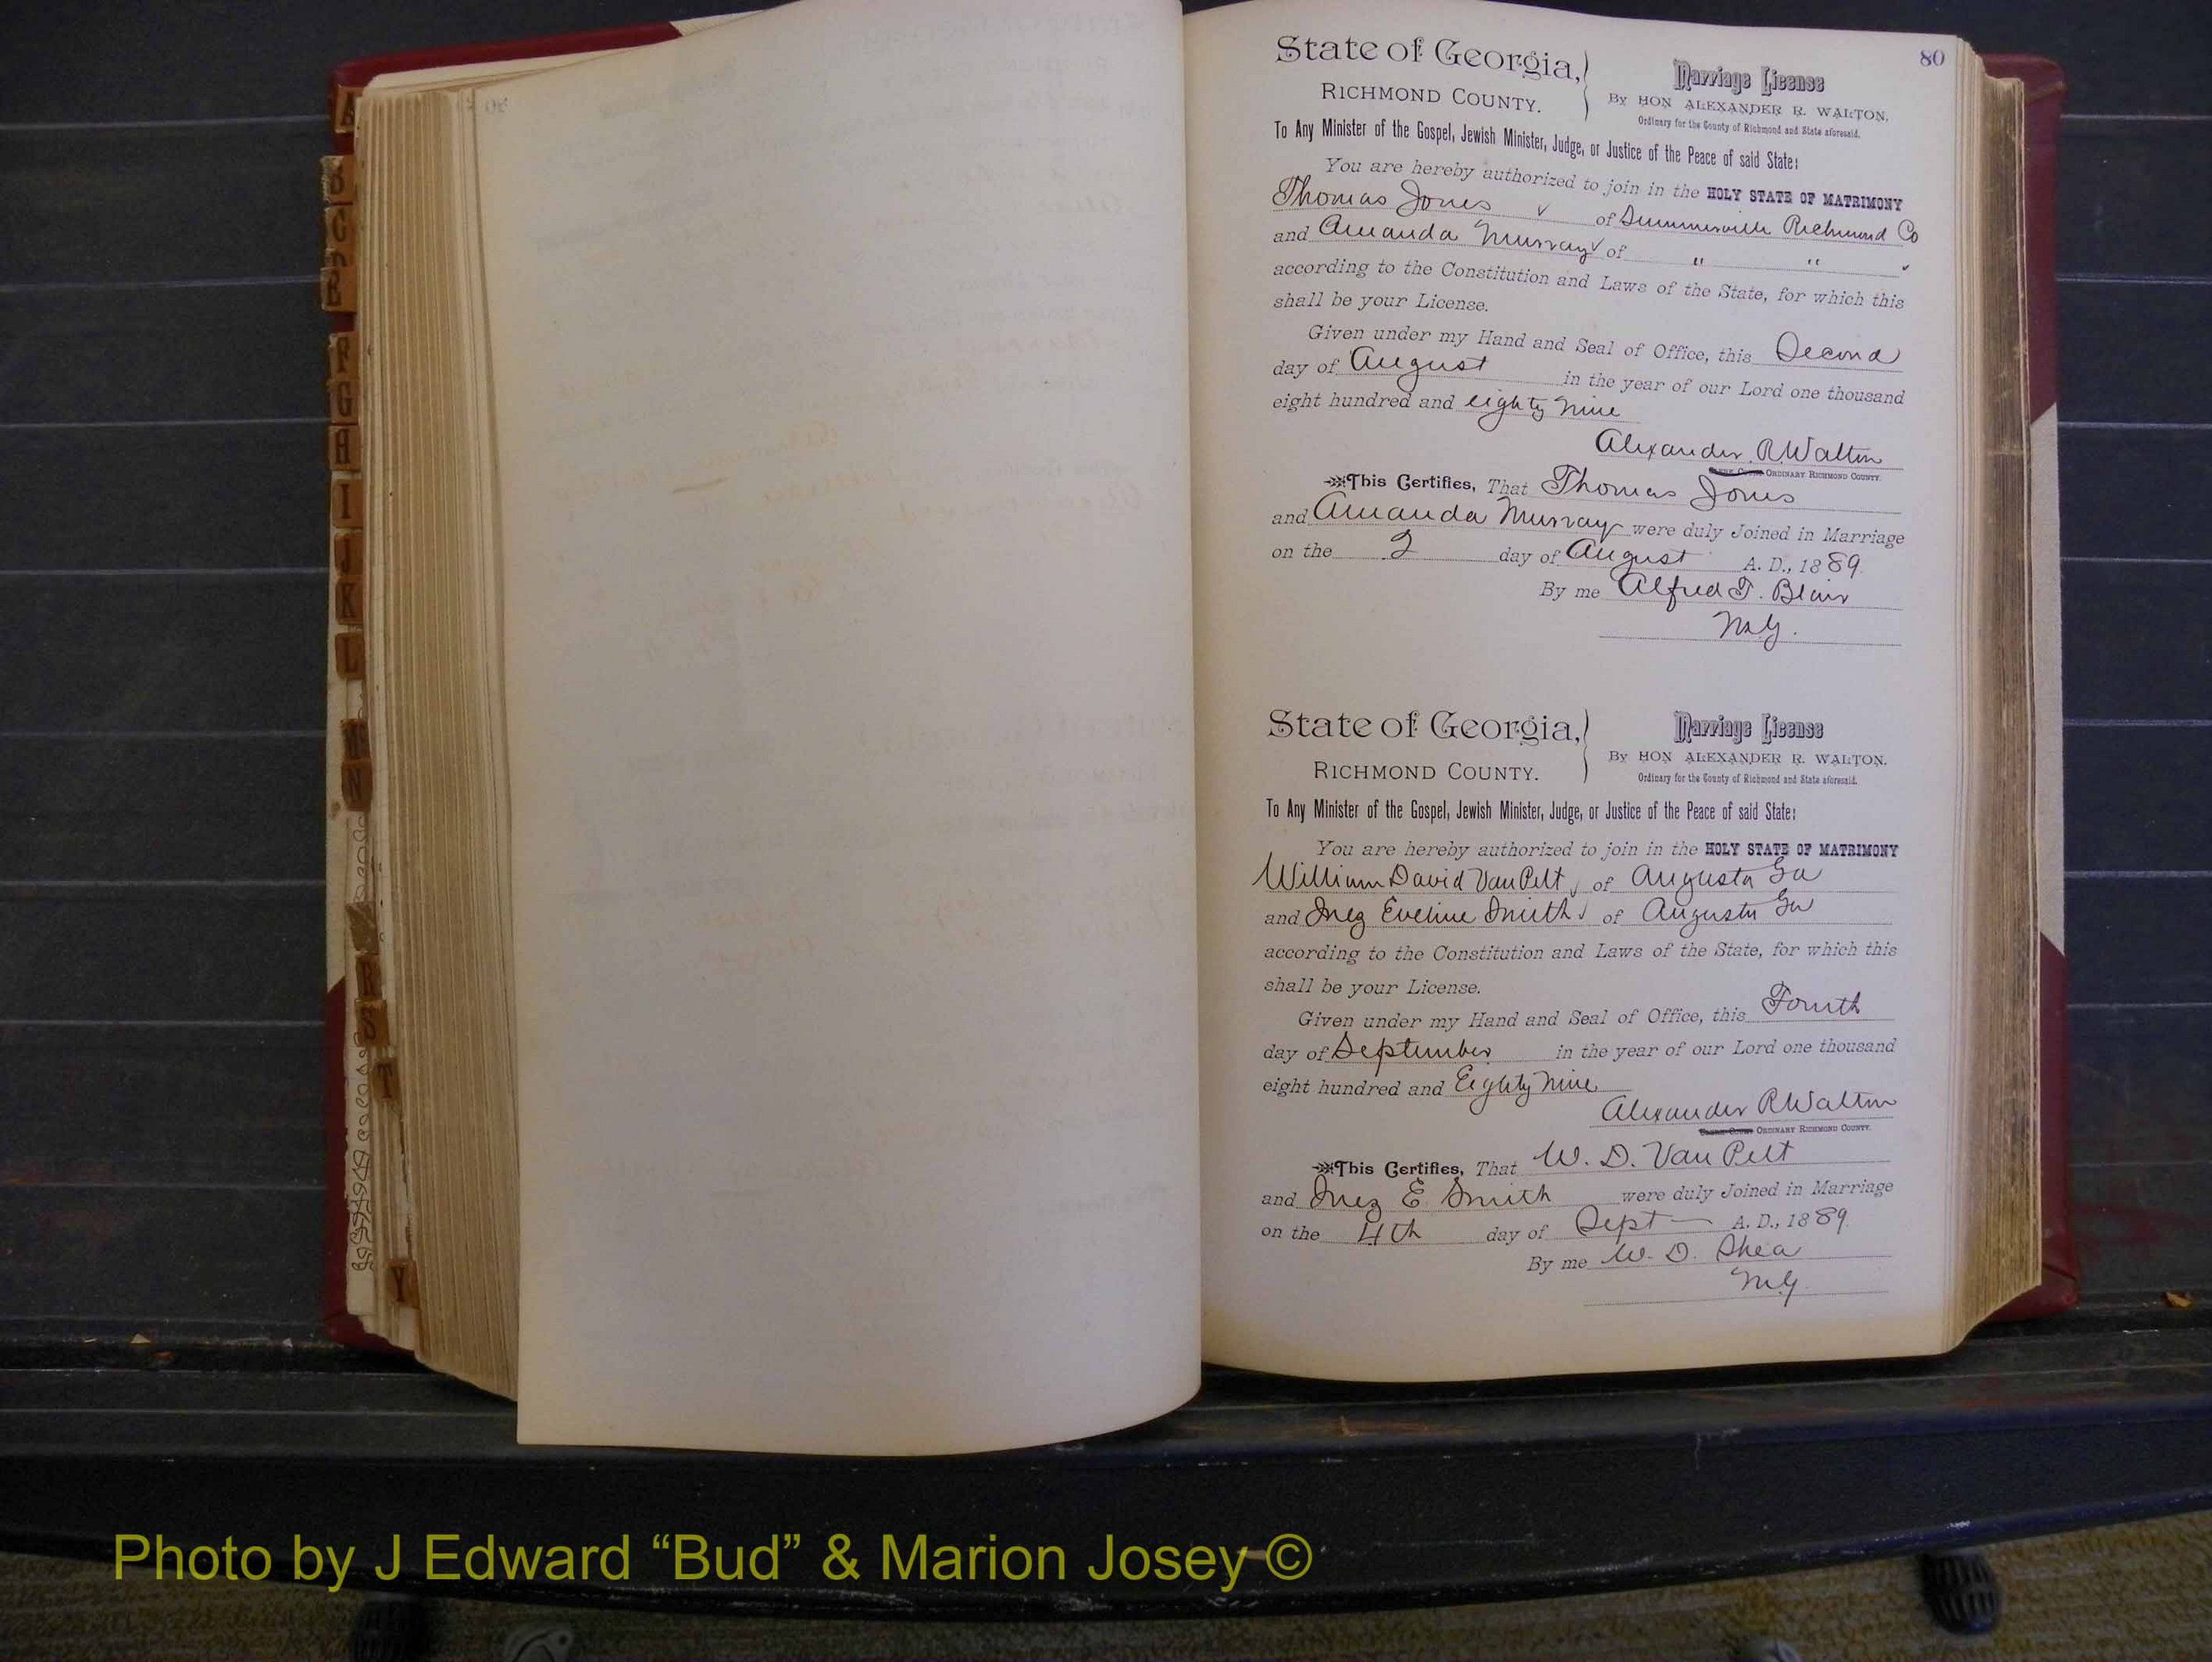 80
State of Georgia,
RICHMOND COUNTY.
Marriage License
By HON ALEXANDER R. WALTON,
Ordinary for the County of Richmond and State aforesaid.
To Any Minister of the Gospel, Jewish Minister, Judge, or Justice of the Peace of said State:
You are hereby authorized to join in the HOLY STATE OF MATRIMONY
Thomas Jones of Summerville Richmond Co
and Amanda Murray of " "
according to the Constitution and Laws of the State, for which this
shall be your License.
Given under my Hand and Seal of Office, this Second
day of August in the year of our Lord one thousand
eight hundred and eighty nine
Alexander R Walton
ORDINARY RICHMOND COUNTY.
This Certifies, That Thomas Jones
and Amanda Murray were duly Joined in Marriage
on the 2 day of August A. D., 1889.
By me Alfred T. Blair
M.G.
State of Georgia,
RICHMOND COUNTY.
Marriage License
By HON ALEXANDER R. WALTON,
Ordinary for the County of Richmond and State aforesaid.
To Any Minister of the Gospel, Jewish Minister, Judge, or Justice of the Peace of said State:
You are hereby authorized to join in the HOLY STATE OF MATRIMONY
William David Van Pelt of Augusta Ga
and Inez Eveline Smith of Augusta Ga
according to the Constitution and Laws of the State, for which this
shall be your License.
Given under my Hand and Seal of Office, this Fourth
day of September in the year of our Lord one thousand
eight hundred and Eighty Nine
Alexander R Walton
ORDINARY RICHMOND COUNTY.
This Certifies, That W. D. Van Pelt
and Inez E Smith were duly Joined in Marriage
on the 4th day of Sept A. D., 1889.
By me W. D. Shea
M.G.
A
B
C
F
G
H
I
J
K
L
N
R
S
T
Y
Photo by J Edward “Bud” & Marion Josey ©